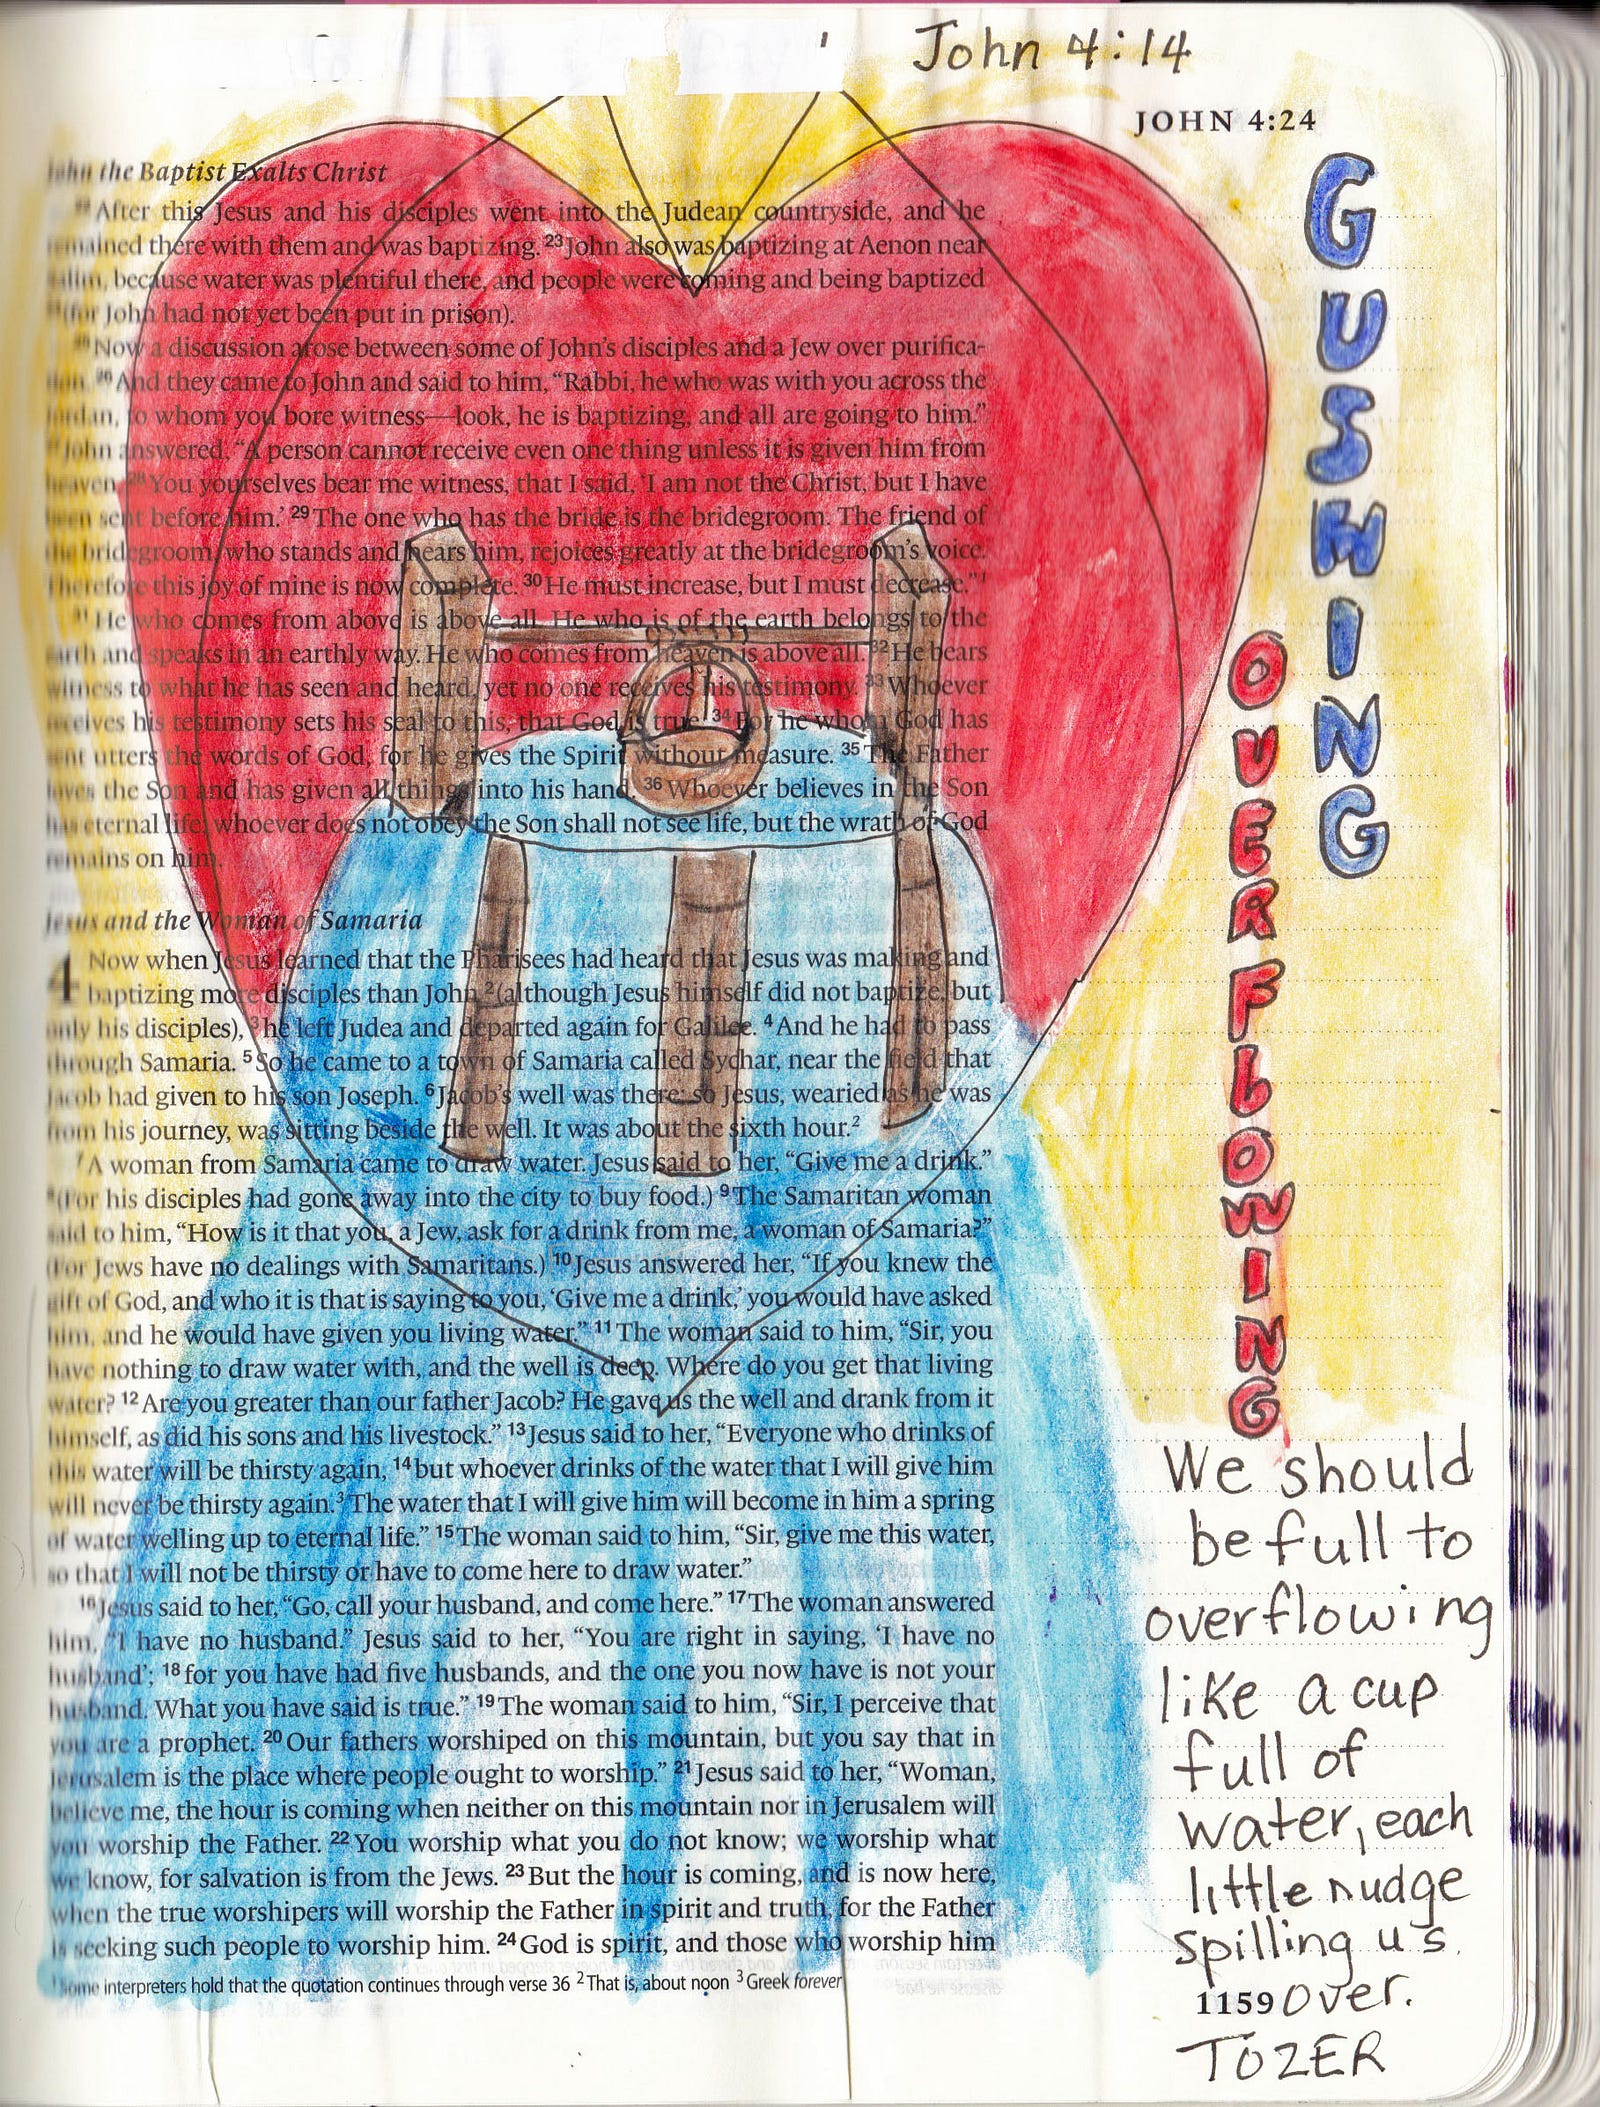 John 4:14
JOHN 4:24
John the Baptist Exalts Christ
22 After this Jesus and his disciples went into the Judean countryside, and he
remained there with them and was baptizing. 23 John also was baptizing at Aenon near
Salim, because water was plentiful there, and people were coming and being baptized
24 (for John had not yet been put in prison).
25 Now a discussion arose between some of John's disciples and a Jew over purifica-
tion. 26 And they came to John and said to him, “Rabbi, he who was with you across the
Jordan, to whom you bore witness—look, he is baptizing, and all are going to him.”
27 John answered, “A person cannot receive even one thing unless it is given him from
heaven. 28 You yourselves bear me witness, that I said, ‘I am not the Christ, but I have
been sent before him.’ 29 The one who has the bride is the bridegroom. The friend of
the bridegroom, who stands and hears him, rejoices greatly at the bridegroom's voice.
Therefore this joy of mine is now complete. 30 He must increase, but I must decrease.” 1
31 He who comes from above is above all. He who is of the earth belongs to the
earth and speaks in an earthly way. He who comes from heaven is above all. 32 He bears
witness to what he has seen and heard, yet no one receives his testimony. 33 Whoever
receives his testimony sets his seal to this, that God is true. 34 For he whom God has
sent utters the words of God, for he gives the Spirit without measure. 35 The Father
loves the Son and has given all things into his hand. 36 Whoever believes in the Son
has eternal life; whoever does not obey the Son shall not see life, but the wrath of God
remains on him.
Jesus and the Woman of Samaria
4 Now when Jesus learned that the Pharisees had heard that Jesus was making and
baptizing more disciples than John 2 (although Jesus himself did not baptize, but
only his disciples), 3 he left Judea and departed again for Galilee. 4 And he had to pass
through Samaria. 5 So he came to a town of Samaria called Sychar, near the field that
Jacob had given to his son Joseph. 6 Jacob's well was there; so Jesus, wearied as he was
from his journey, was sitting beside the well. It was about the sixth hour. 2
7 A woman from Samaria came to draw water. Jesus said to her, “Give me a drink.”
8 (For his disciples had gone away into the city to buy food.) 9 The Samaritan woman
said to him, “How is it that you, a Jew, ask for a drink from me, a woman of Samaria?”
(For Jews have no dealings with Samaritans.) 10 Jesus answered her, “If you knew the
gift of God, and who it is that is saying to you, ‘Give me a drink,’ you would have asked
him, and he would have given you living water.” 11 The woman said to him, “Sir, you
have nothing to draw water with, and the well is deep. Where do you get that living
water? 12 Are you greater than our father Jacob? He gave us the well and drank from it
himself, as did his sons and his livestock.” 13 Jesus said to her, “Everyone who drinks of
this water will be thirsty again, 14 but whoever drinks of the water that I will give him
will never be thirsty again. 3 The water that I will give him will become in him a spring
of water welling up to eternal life.” 15 The woman said to him, “Sir, give me this water,
so that I will not be thirsty or have to come here to draw water.”
16 Jesus said to her, “Go, call your husband, and come here.” 17 The woman answered
him, “I have no husband.” Jesus said to her, “You are right in saying, ‘I have no
husband’; 18 for you have had five husbands, and the one you now have is not your
husband. What you have said is true.” 19 The woman said to him, “Sir, I perceive that
you are a prophet. 20 Our fathers worshiped on this mountain, but you say that in
Jerusalem is the place where people ought to worship.” 21 Jesus said to her, “Woman,
believe me, the hour is coming when neither on this mountain nor in Jerusalem will
you worship the Father. 22 You worship what you do not know; we worship what
we know, for salvation is from the Jews. 23 But the hour is coming, and is now here,
when the true worshipers will worship the Father in spirit and truth, for the Father
is seeking such people to worship him. 24 God is spirit, and those who worship him
1 Some interpreters hold that the quotation continues through verse 36 2 That is, about noon 3 Greek forever
GUSHING
OVERFLOWING
We should
be full to
overflowing
like a cup
full of
water, each
little nudge
spilling us
over.
1159
TOZER